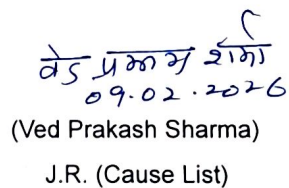 वेद प्रकाश शर्मा
09.02.2026
(Ved Prakash Sharma)
J.R. (Cause List)